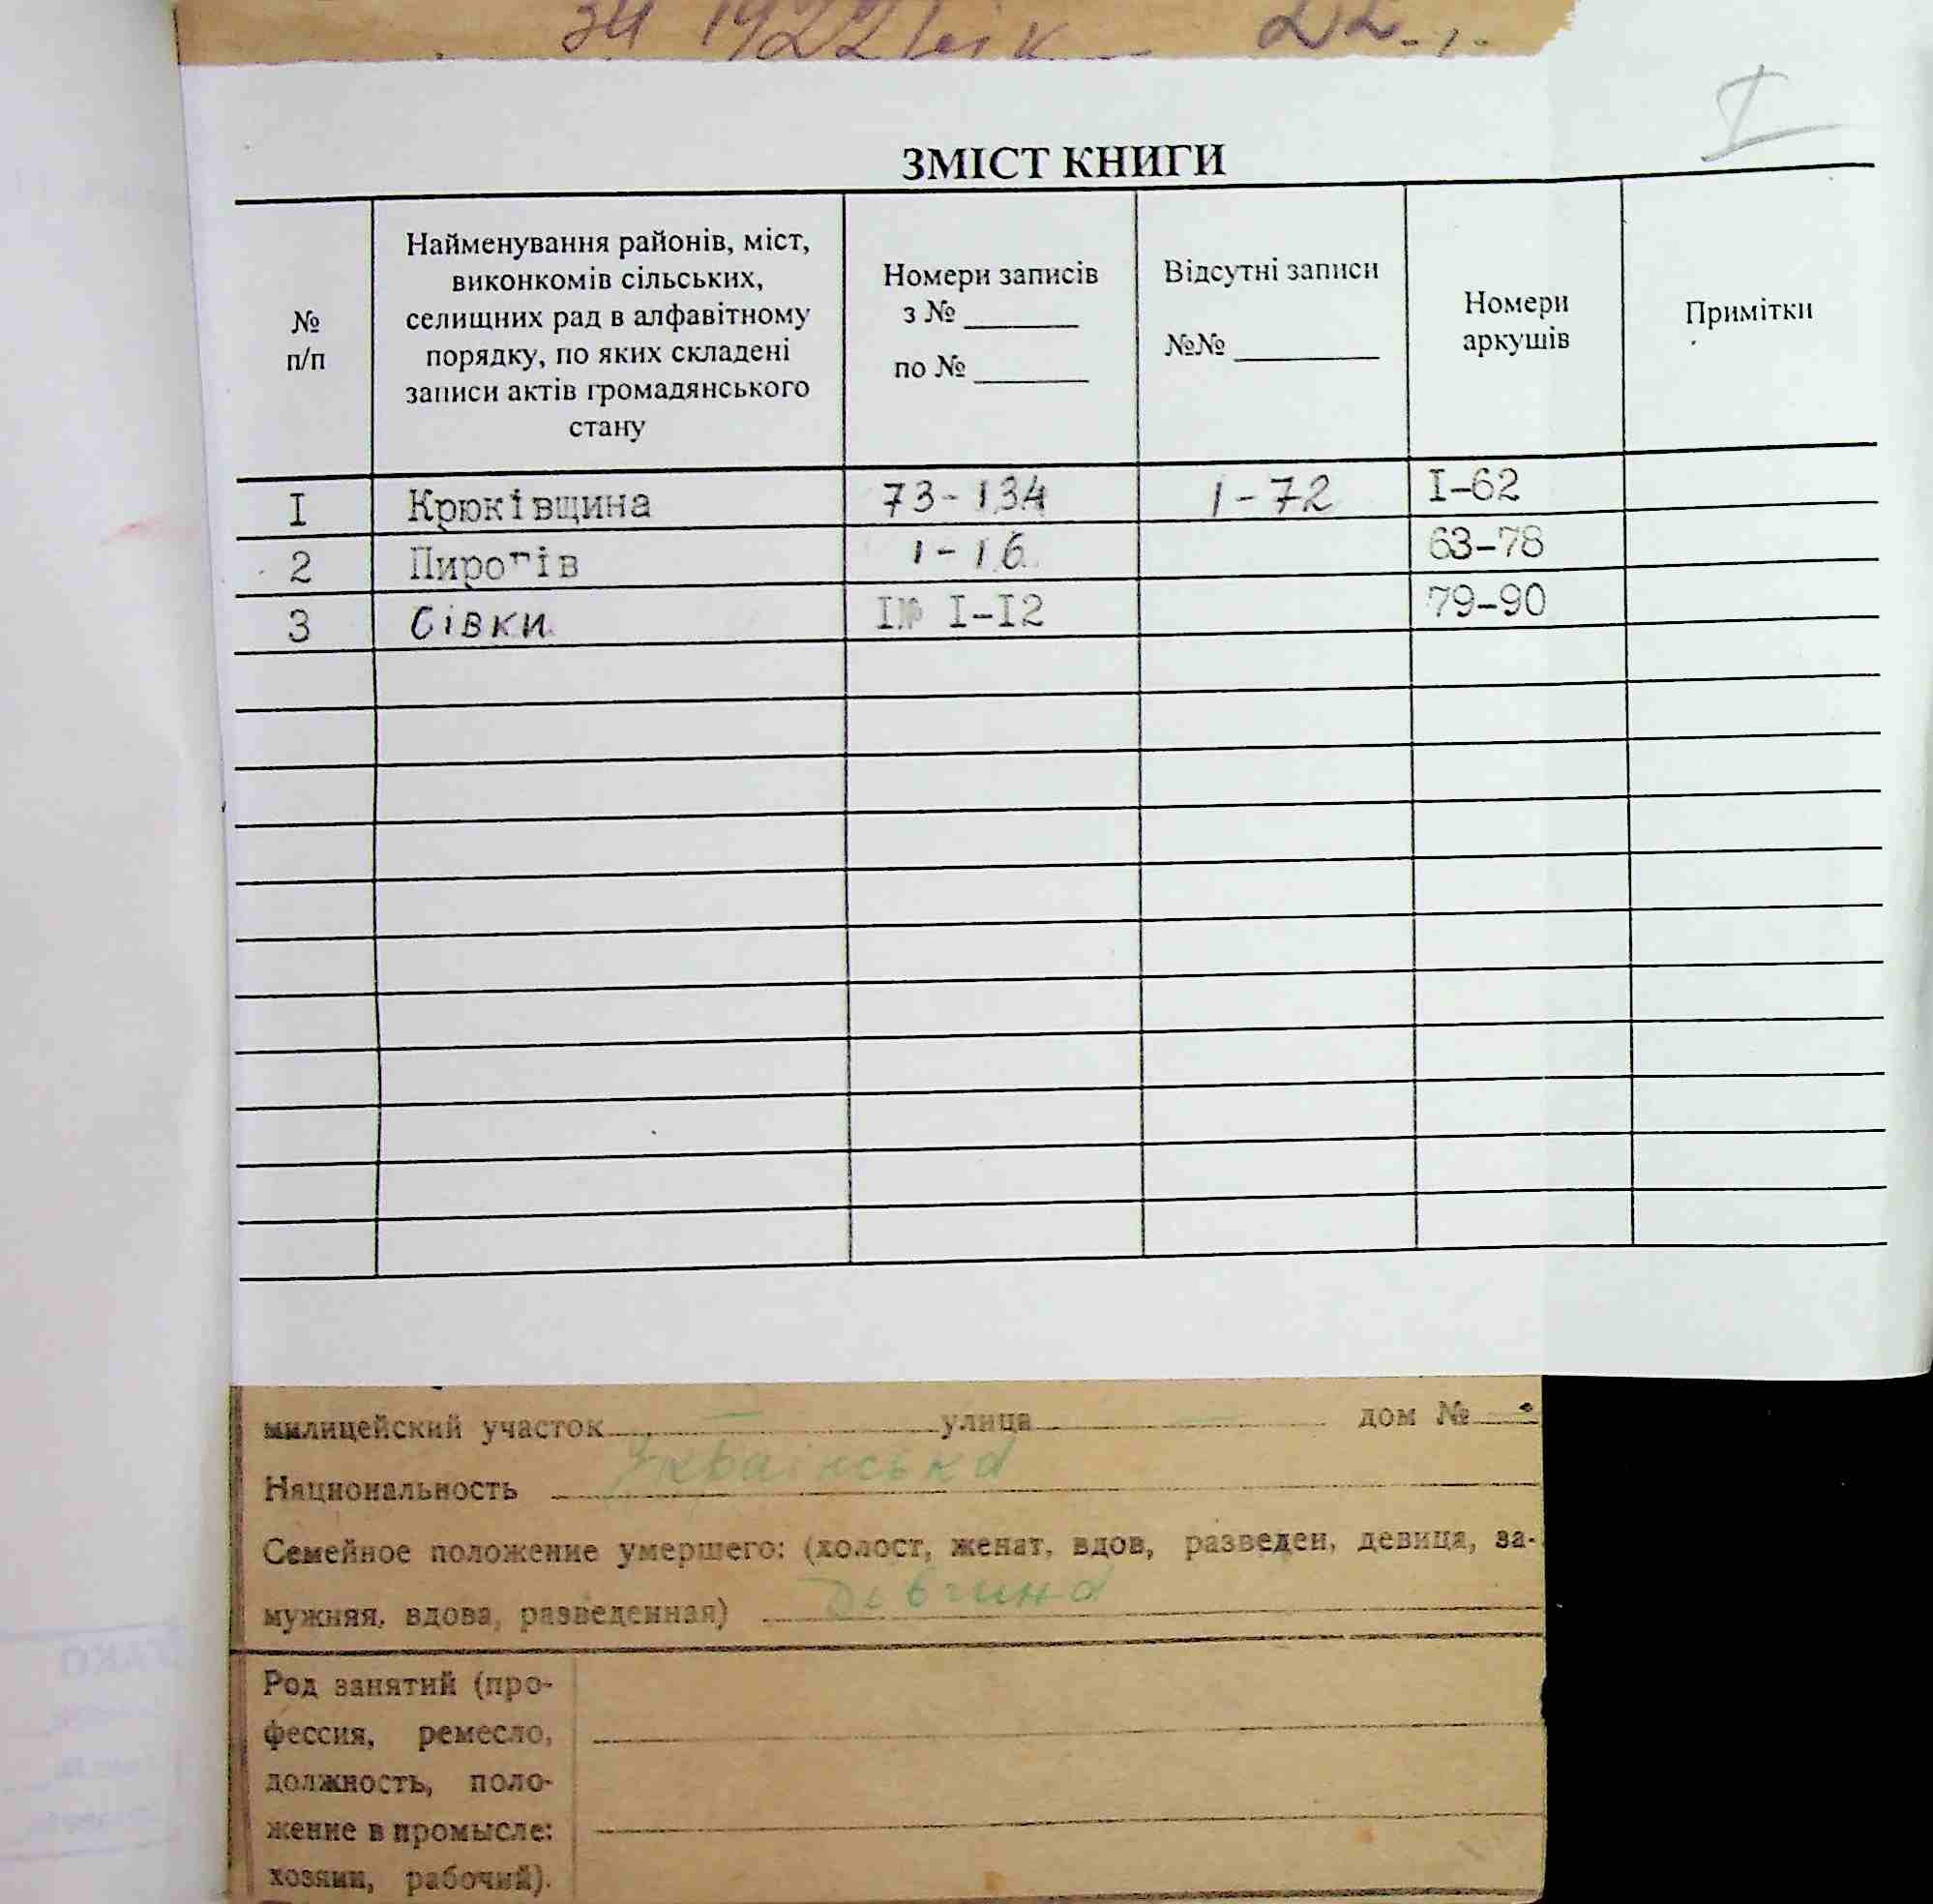 за 1922 рік
I
ЗМІСТ КНИГИ
№ п/п
Найменування районів, міст,
виконкомів сільських,
селищних рад в алфавітному
порядку, по яких складені
записи актів громадянського
стану
Номери записів
з № ______
по № ______
Відсутні записи
№№ ________
Номери
аркушів
Примітки
I Крюківщина 73-134 1-72 I-62
2 Пирогів 1-16 63-78
3 Сівки I-I2 79-90
милицейский участок улица дом №
Национальность Українська
Семейное положение умершего: (холост, женат, вдов, разведен, девица, за-
мужняя, вдова, разведенная) Дівчина
Род занятий (про-
фессия, ремесло,
должность, поло-
жение в промысле:
хозяин, рабочий).